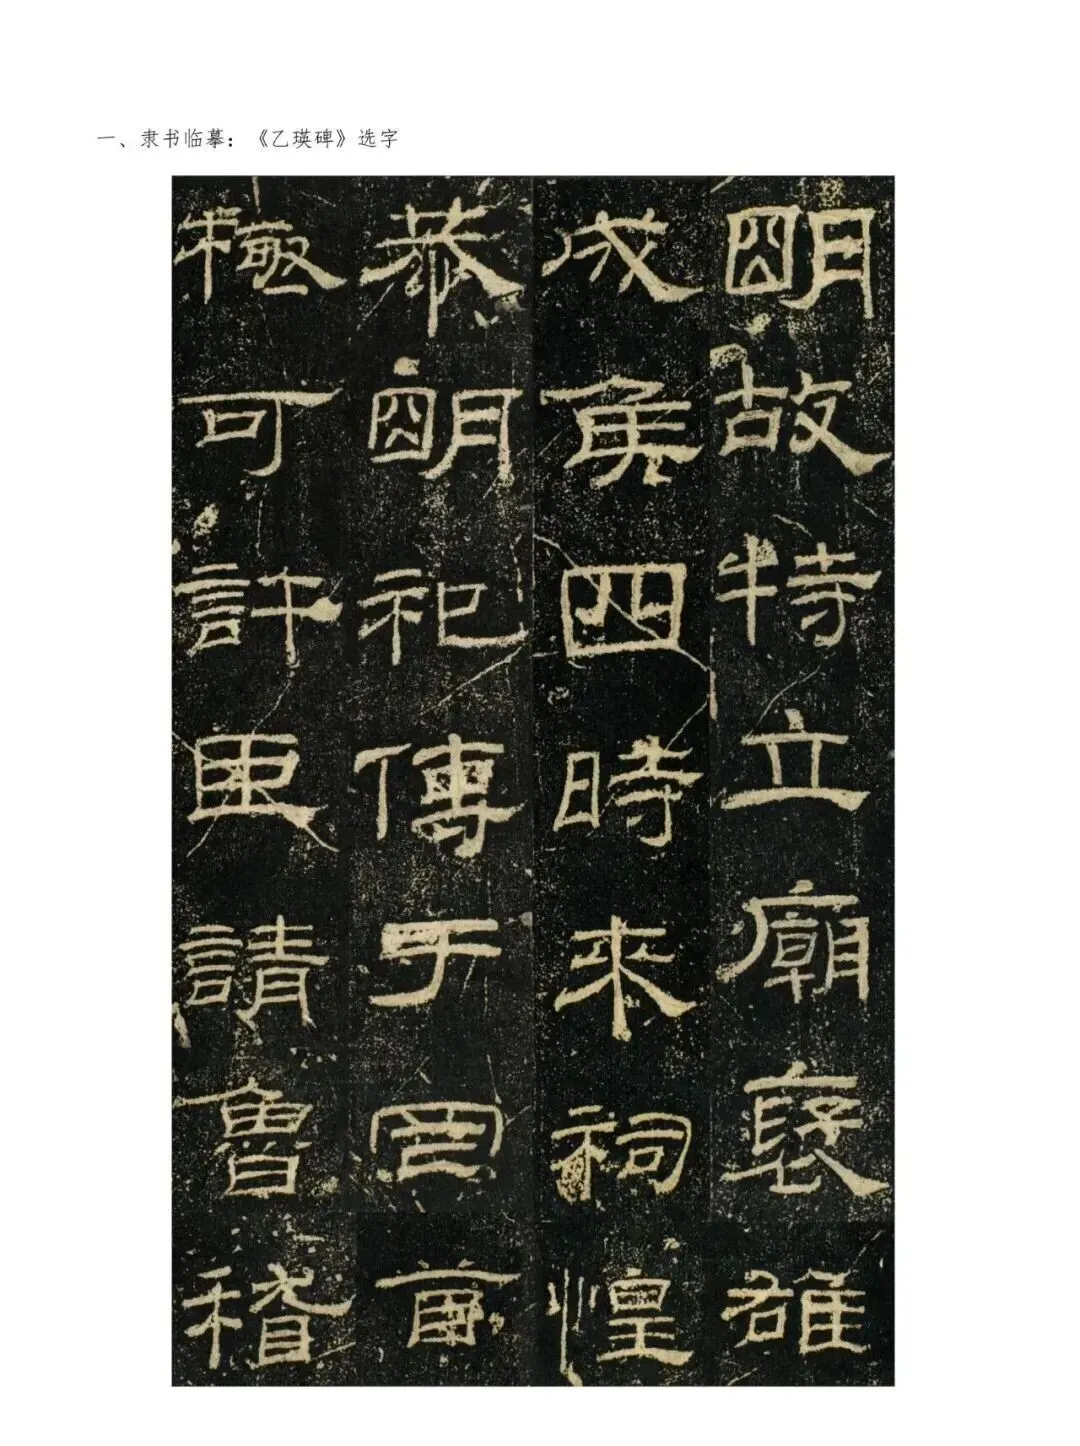 一、隶书临摹：《乙瑛碑》选字
明故特立廟褒雄
成侯四時來祠惶
恭明祀傳于罔首
極可許臣請魯稽